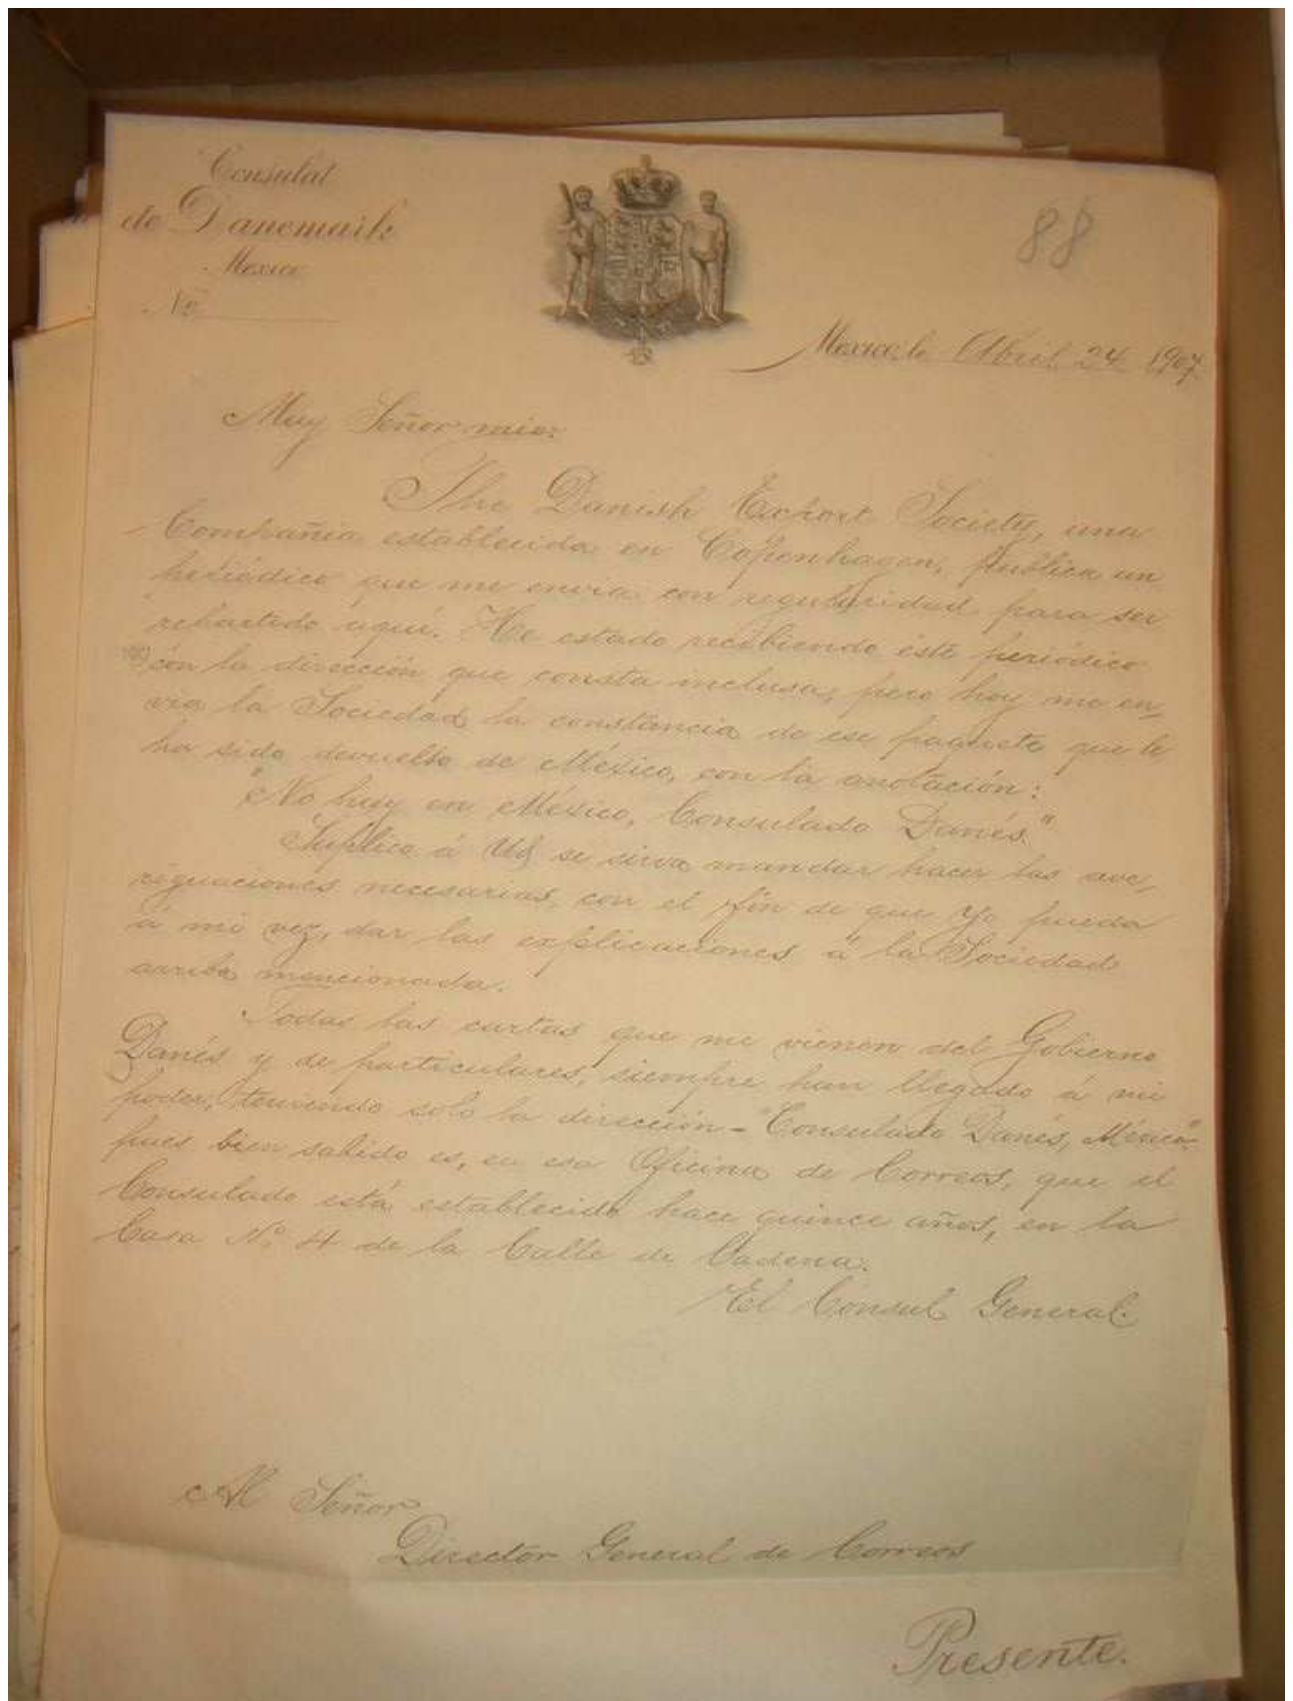 Consulat
de Danemark
Mexico
No
88
Mexico, le Abril 24 1907
Muy Señor mio:
The Danish Export Society, una
Compañia establecida en Copenhagen, publica un
periódico que me envia con regularidad para ser
repartido aqui. He estado recibiendo éste periódico
con la dirección que consta inclusa, pero hoy me en-
via la Sociedad la constancia de ese paquete que le
ha sido devuelto de México, con la anotación:
"No hay en México, Consulado Danés."
Suplico á Ud. se sirva mandar hacer las ave-
riguaciones necesarias, con el fin de que yo pueda
á mi vez, dar las explicaciones á la Sociedad
arriba mencionada.
Todas las cartas que me vienen del Gobierno
Danés y de particulares, siempre han llegado á mi
poder, teniendo solo la dirección - "Consulado Danés, México"
pues bien sabido es, en esa Oficina de Correos, que el
Consulado está establecido hace quince años, en la
Casa No. 4 de la Calle de Cadena.
El Consul General.
Al Señor
Director General de Correos
Presente.